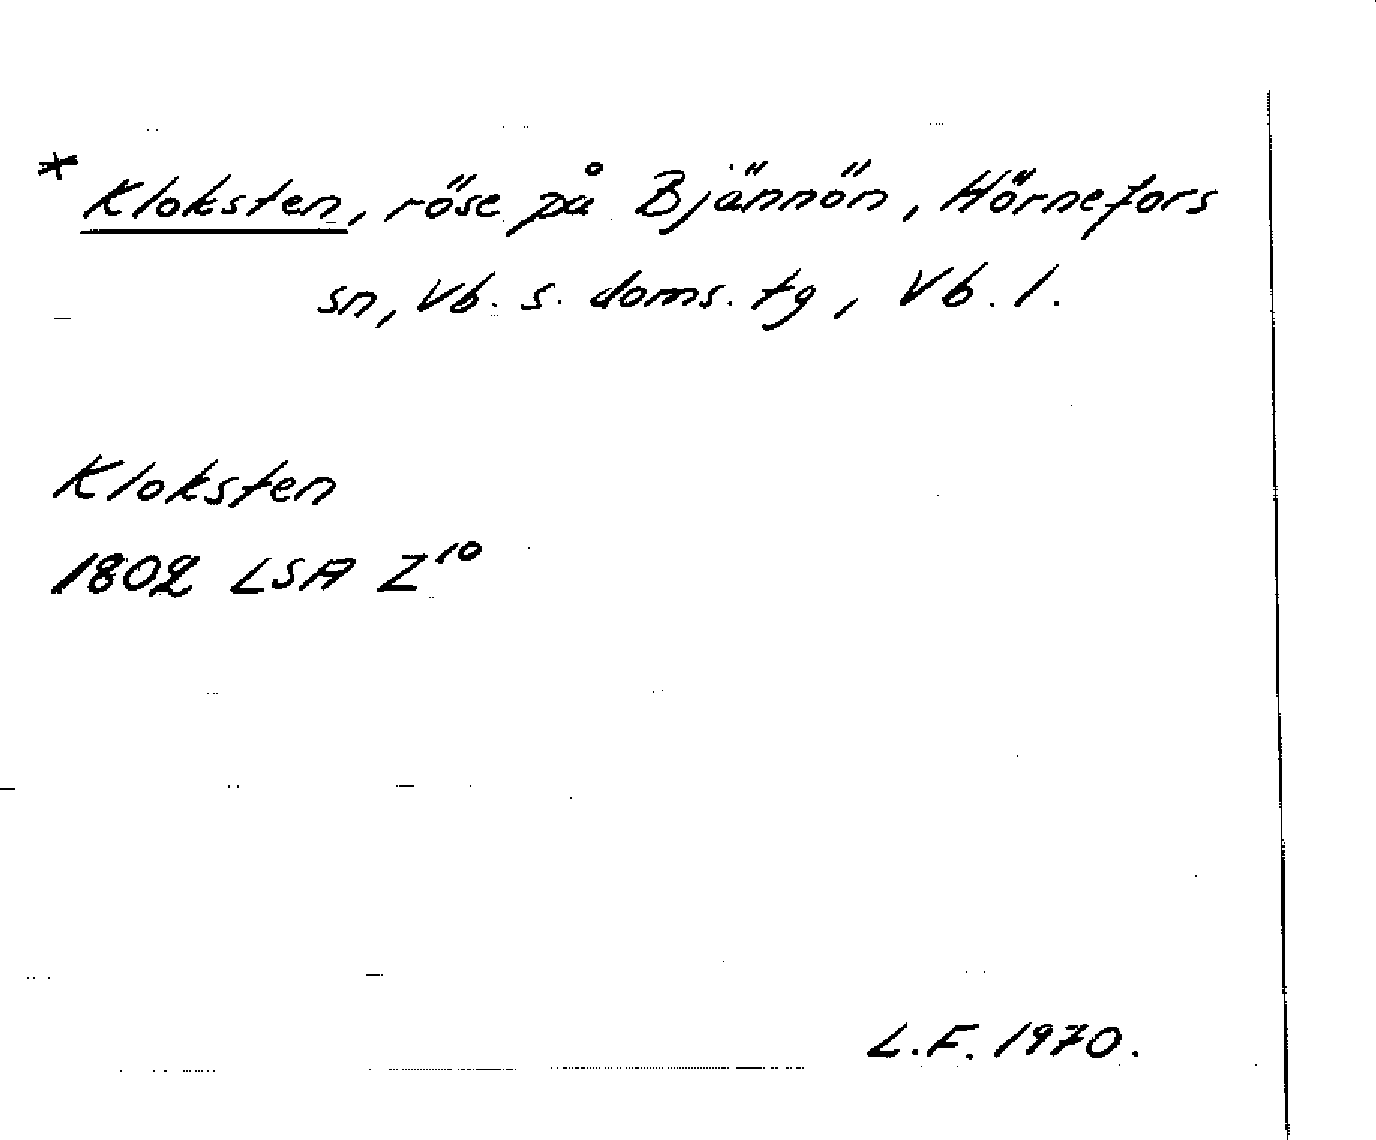 * Kloksten, röse på Bjännön, Hörnefors
sn, Vb. s. doms. tg, Vb. l.
Kloksten
1802 LSA Z10
L.F. 1970.